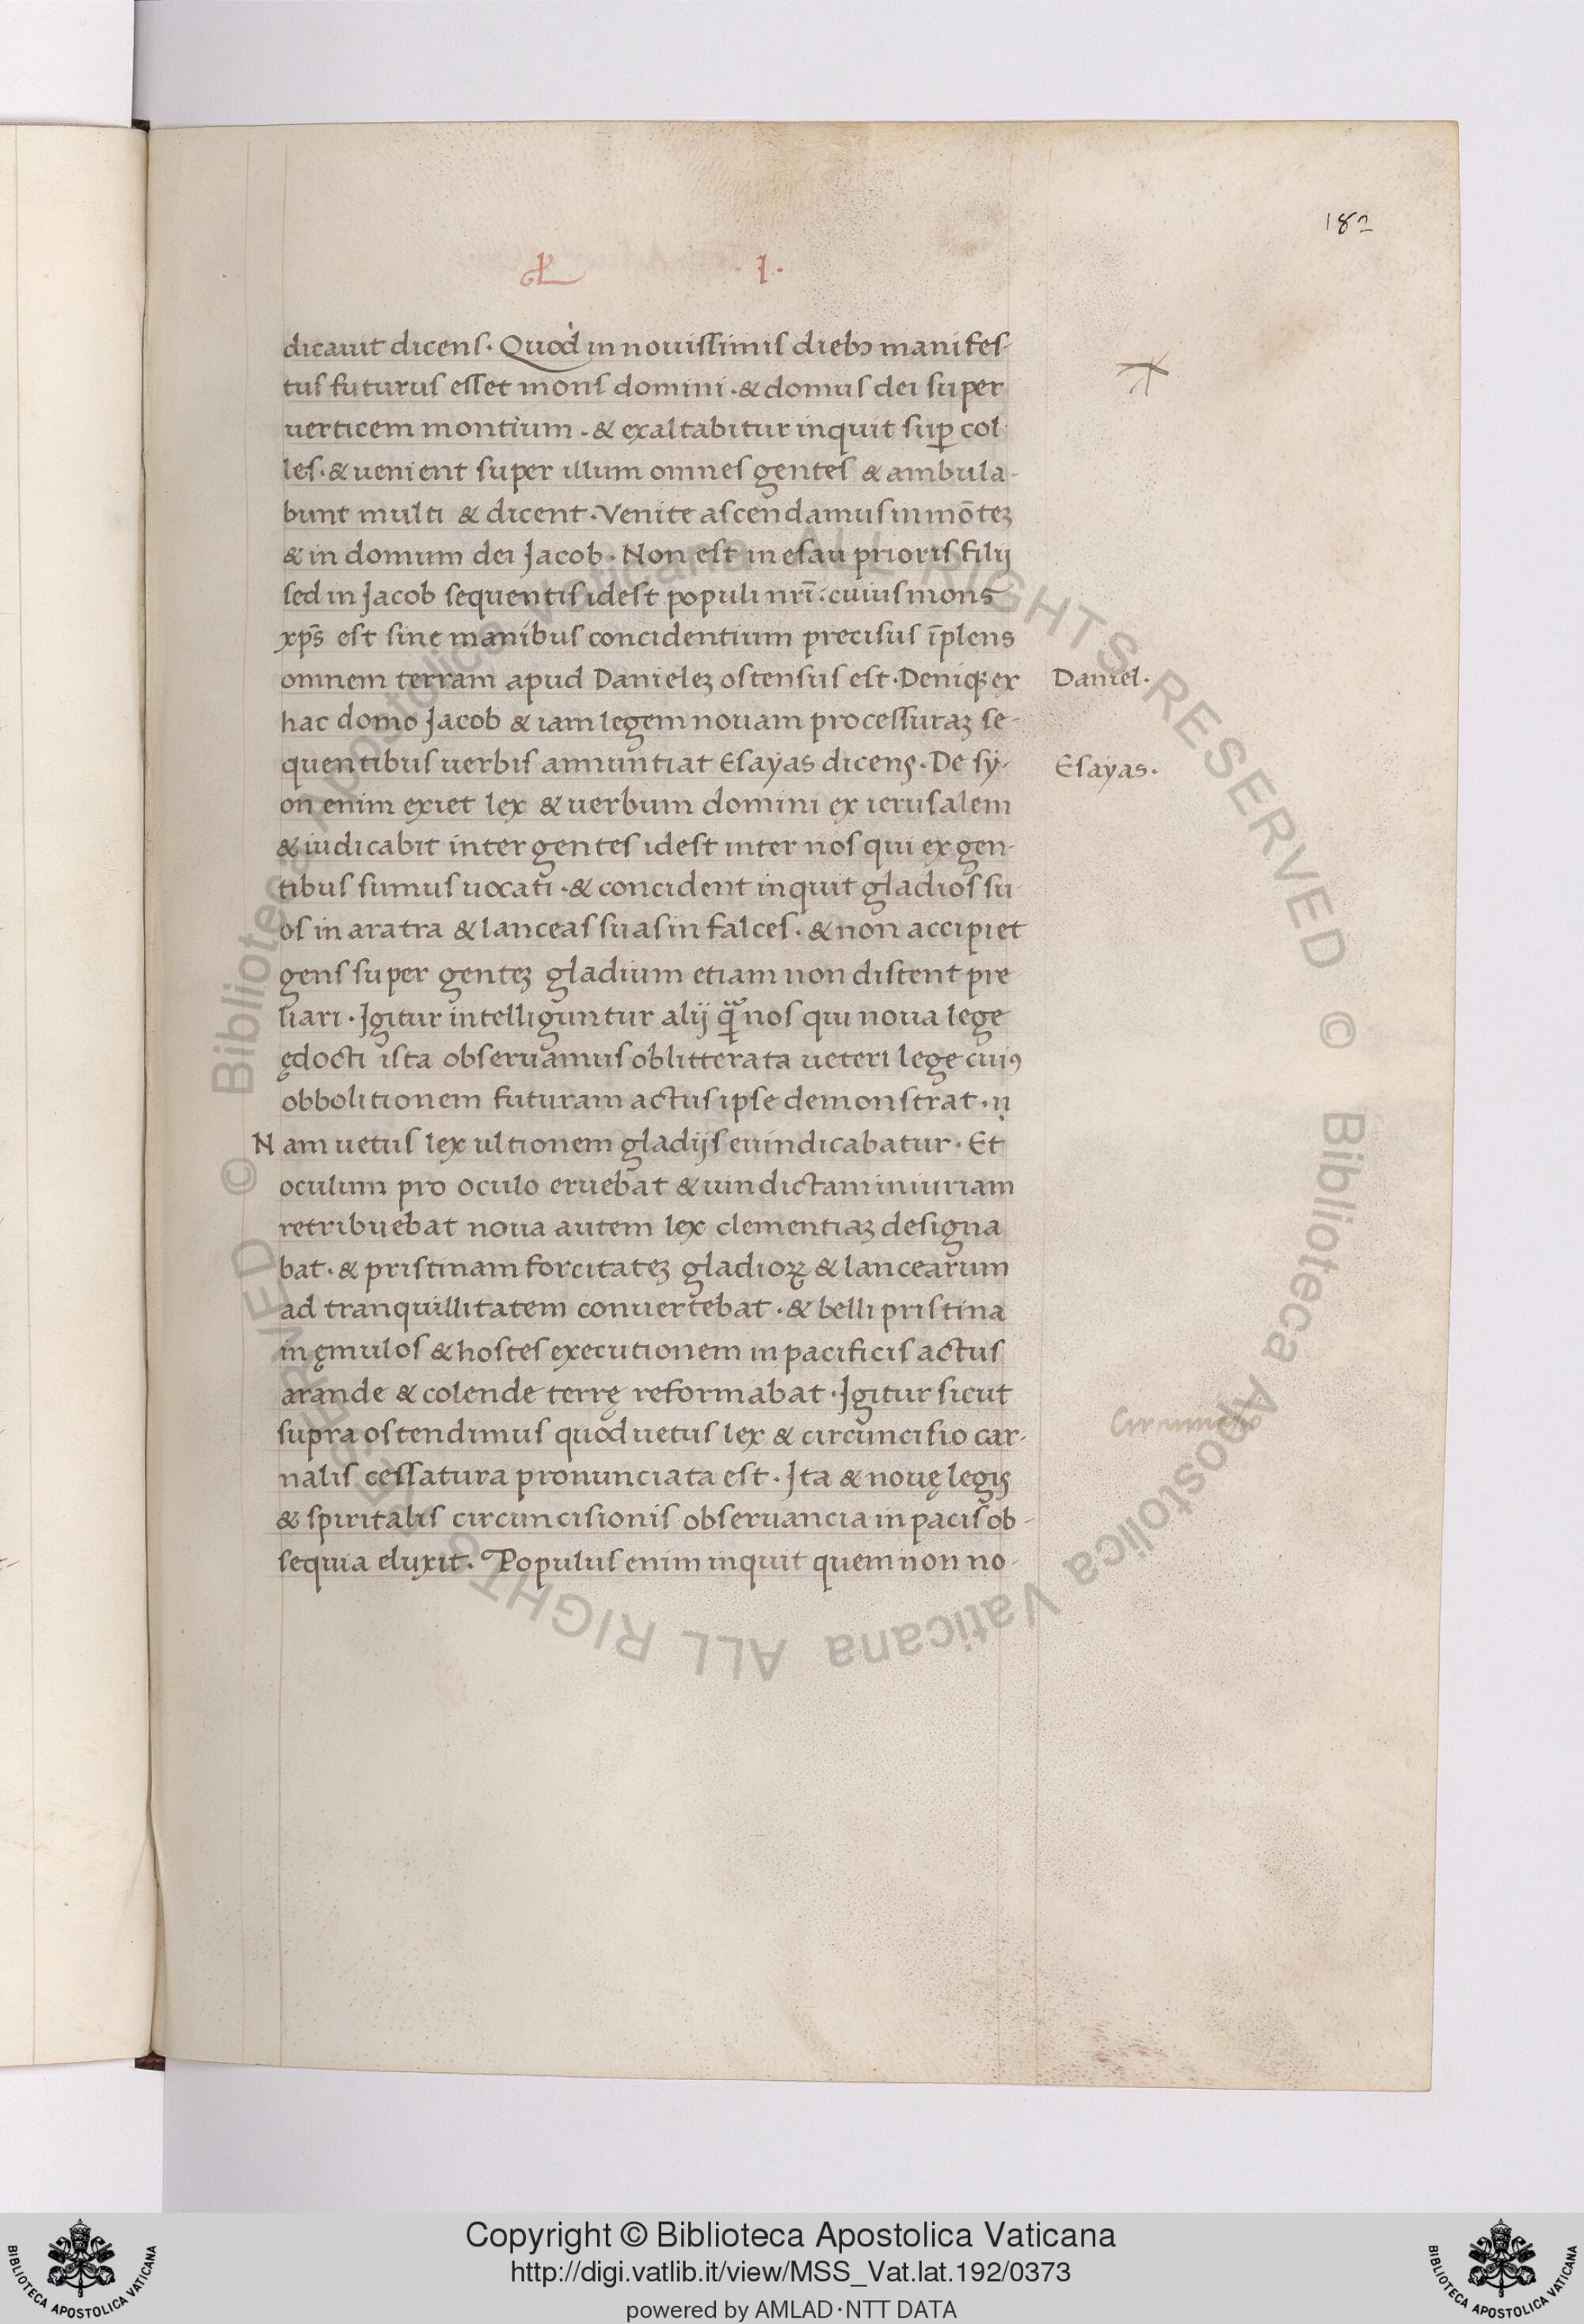 182
.I.
dicauit dicens. Quod in nouissimis diebꝫ manifes-
tus futurus esset mons domini. & domus dei super
uerticem montium. & exaltabitur inquit suꝑ col-
les. & uenient super illum omnes gentes & ambula-
bunt multi & dicent. Venite ascendamus in mōteꝫ
& in domum dei Jacob. Non est in esau prioris filij
sed in Jacob sequentis idest populi nr̄i. cuius mons
xp̄s est sine manibus concidentium precisus īplens
omnem terram apud Danieleꝫ ostensus est. Deniqꝫ ex
Daniel.
hac domo Jacob & iam legem nouam processuraꝫ se-
quentibus uerbis annuntiat Esayas dicens. De sy-
Esayas.
on enim exiet lex & uerbum domini ex ierusalem
& iudicabit inter gentes idest inter nos qui ex gen-
tibus sumus uocati. & concident inquit gladios su
os in aratra & lanceas suas in falces. & non accipiet
gens super genteꝫ gladium etiam non discent pre
liari. Igitur intelliguntur alij ꝙᷓ nos qui noua lege
ędocti ista obseruamus oblitterata ueteri lege cuiꝰ
obbolitionem futuram actus ipse demonstrat. ṇ
Nam uetus lex ultionem gladijs euindicabatur. Et
oculum pro oculo eruebat & uindictam iniuriam
retribuebat noua autem lex clementiaꝫ designa
bat. & pristinam forcitateꝫ gladioꝝ & lancearum
ad tranquillitatem conuertebat. & belli pristina
in ęmulos & hostes executionem in pacificis actus
arande & colende terrę reformabat. Igitur sicut
supra ostendimus quod uetus lex & circuncisio car-
nalis cessatura pronunciata est. Ita & nouę legis
& spiritalis circuncisionis obseruancia in pacis ob-
sequia eluxit. Populus enim inquit quem non no-
© Biblioteca Apostolica Vaticana ALL RIGHTS RESERVED © Biblioteca Apostolica Vaticana ALL RIGHTS RESERVED
Copyright © Biblioteca Apostolica Vaticana
http://digi.vatlib.it/view/MSS_Vat.lat.192/0373
powered by AMLAD·NTT DATA
BIBLIOTECA APOSTOLICA VATICANA
BIBLIOTECA APOSTOLICA VATICANA